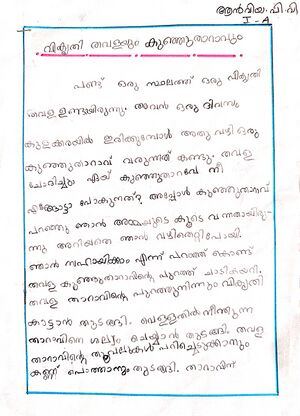 ആൻവിയ. പി. വി
I - A
വികൃതി തവളയും കുഞ്ഞുതാറാവും
പണ്ട് ഒരു സ്ഥലത്ത് ഒരു വികൃതി
തവള ഉണ്ടായിരുന്നു. അവൻ ഒരു ദിവസം
കുളക്കരയിൽ ഇരിക്കുമ്പോൾ അതു വഴി ഒരു
കുഞ്ഞുതാറാവ് വരുന്നത് കണ്ടു. തവള
ചോദിച്ചു ഏയ് കുഞ്ഞുതാറാവേ നീ
എങ്ങോട്ടാ പോകുന്നത്? അപ്പോൾ കുഞ്ഞുതാറാവ്
പറഞ്ഞു ഞാൻ അമ്മയുടെ കൂട്ടെ വന്നതായിരു-
ന്നു അറിയാതെ ഞാൻ വഴിതെറ്റിപോയി.
ഞാൻ സഹായിക്കാം എന്ന് പറഞ്ഞ് കൊണ്ട്
തവള കുഞ്ഞുതാറാവിന്റെ പുറത്ത് ചാടികയറി.
തവള താറാവിന്റെ പുറത്തുനിന്നും വികൃതി
കാട്ടാൻ തുടങ്ങി. വെള്ളത്തിൽ നീന്തുന്ന
താറാവിനെ ശല്യം ചെയ്യാൻ തുടങ്ങി. തവള
താറാവിന്റെ തൂവലുകൾ പറിച്ചെടുക്കാനും
കണ്ണ് പൊത്താനും തുടങ്ങി. താറാവിന്